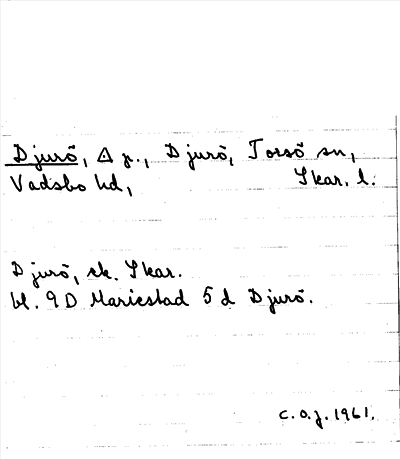 Djurö, Δ p., Djurö, Torsö sn,
Vadsbo hd, Skar. l.
Djurö, ek. Skar.
bl. 9D Mariestad 5 d Djurö.
C.O.J. 1961.